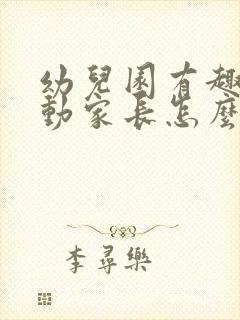 幼兒園有趣
動家長怎麼
李尋樂